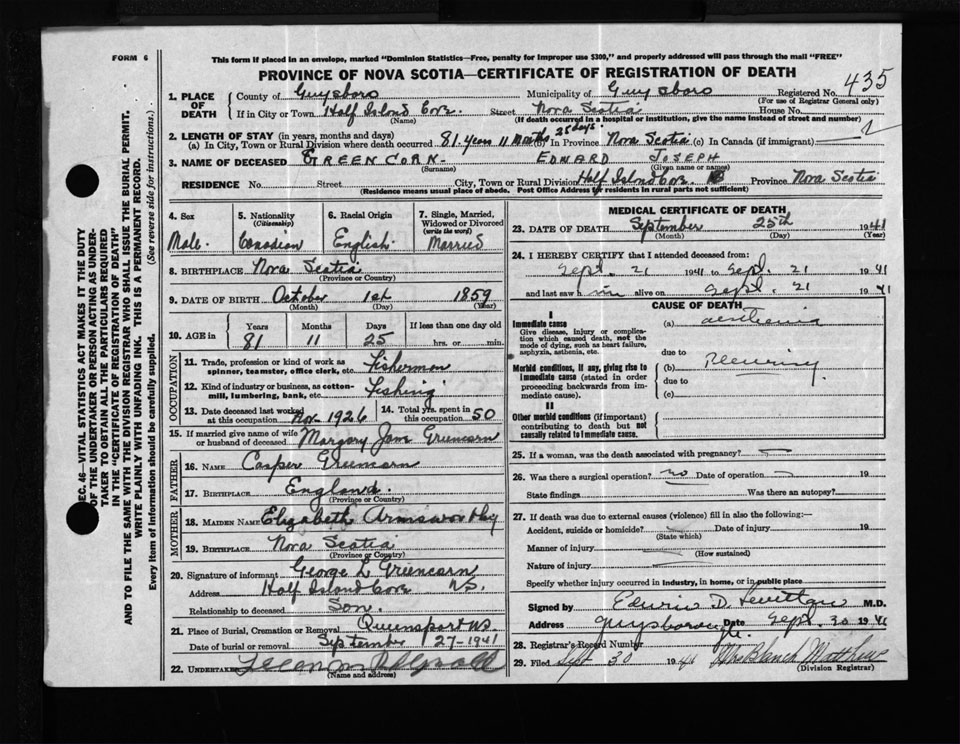 FORM 6
This form if placed in an envelope, marked "Dominion Statistics—Free, penalty for improper use $300," and properly addressed will pass through the mail "FREE"
PROVINCE OF NOVA SCOTIA—CERTIFICATE OF REGISTRATION OF DEATH
435
SEC. 46—VITAL STATISTICS ACT MAKES IT THE DUTY
OF THE UNDERTAKER OR PERSON ACTING AS UNDER-
TAKER TO OBTAIN ALL THE PARTICULARS REQUIRED
IN THE "CERTIFICATE OF REGISTRATION OF DEATH"
AND TO FILE THE SAME WITH THE DIVISION REGISTRAR WHO SHALL ISSUE THE BURIAL PERMIT.
WRITE PLAINLY WITH UNFADING INK. THIS IS A PERMANENT RECORD.
Every item of information should be carefully supplied. (See reverse side for instructions.)
1. PLACE OF DEATH
County of Guysboro Municipality of Guysboro Registered No.
(For use of Registrar General only)
If in City or Town Half Island Cove. Street Nova Scotia House No.
(Name) (If death occurred in a hospital or institution, give the name instead of street and number)
2. LENGTH OF STAY (in years, months and days)
(a) In City, Town or Rural Division where death occurred 81. years 11 Months 25 days. (b) In Province Nova Scotia (c) In Canada (if immigrant)
3. NAME OF DECEASED GREENCORN. EDWARD JOSEPH
(Surname) (Given name or names)
RESIDENCE No. Street City, Town or Rural Division Half Island Cove. Province Nova Scotia
(Residence means usual place of abode. Post Office Address for residents in rural parts not sufficient)
4. Sex
Male.
5. Nationality
(Citizenship)
Canadian
6. Racial Origin
English.
7. Single, Married,
Widowed or Divorced
(write the word)
Married
8. BIRTHPLACE Nova Scotia
(Province or Country)
9. DATE OF BIRTH October 1st 1859
(Month) (Day) (Year)
10. AGE in
Years Months Days If less than one day old
81 11 25 hrs. or min.
OCCUPATION
11. Trade, profession or kind of work as
spinner, teamster, office clerk, etc. Fisherman
12. Kind of industry or business, as cotton-
mill, lumbering, bank, etc. Fishing
13. Date deceased last worked
at this occupation Nov. 1926
14. Total yrs. spent in
this occupation 50
15. If married give name of wife
or husband of deceased Margary Jane Greencorn
FATHER
16. NAME Casper Greencorn
17. BIRTHPLACE England.
(Province or Country)
MOTHER
18. MAIDEN NAME Elizabeth Armsworthy
19. BIRTHPLACE Nova Scotia
(Province or Country)
20. Signature of informant George L Greencorn
Address Half Island Cove NS.
Relationship to deceased Son.
21. Place of Burial, Cremation or Removal Queensport NS.
Date of burial or removal September 27-1941
22. UNDERTAKER
(Name and address)
MEDICAL CERTIFICATE OF DEATH
23. DATE OF DEATH September 25th 1941
(Month) (Day) (Year)
24. I HEREBY CERTIFY that I attended deceased from:
Sept. 21 1941 to Sept. 21 1941
and last saw him alive on Sept. 21 1941
CAUSE OF DEATH
I
Immediate cause
Give disease, injury or complica-
tion which caused death, not the
mode of dying, such as heart failure,
asphyxia, asthenia, etc.
(a)
due to
Morbid conditions, if any, giving rise to
immediate cause (stated in order
proceeding backwards from im-
mediate cause).
(b) Pleurisy.
due to
(c)
II
Other morbid conditions (if important)
contributing to death but not
causally related to immediate cause.
25. If a woman, was the death associated with pregnancy?
26. Was there a surgical operation? no Date of operation
State findings Was there an autopsy?
27. If death was due to external causes (violence) fill in also the following:—
Accident, suicide or homicide? Date of injury 19
(State which)
Manner of injury
(How sustained)
Nature of injury
Specify whether injury occurred in industry, in home, or in public place
Signed by Edwin D. M.D.
Address Guysborough. Date Sept. 30 1941
28. Registrar's Record Number
29. Filed Sept 30 1941 Mrs Blanch Matthew
(Division Registrar)